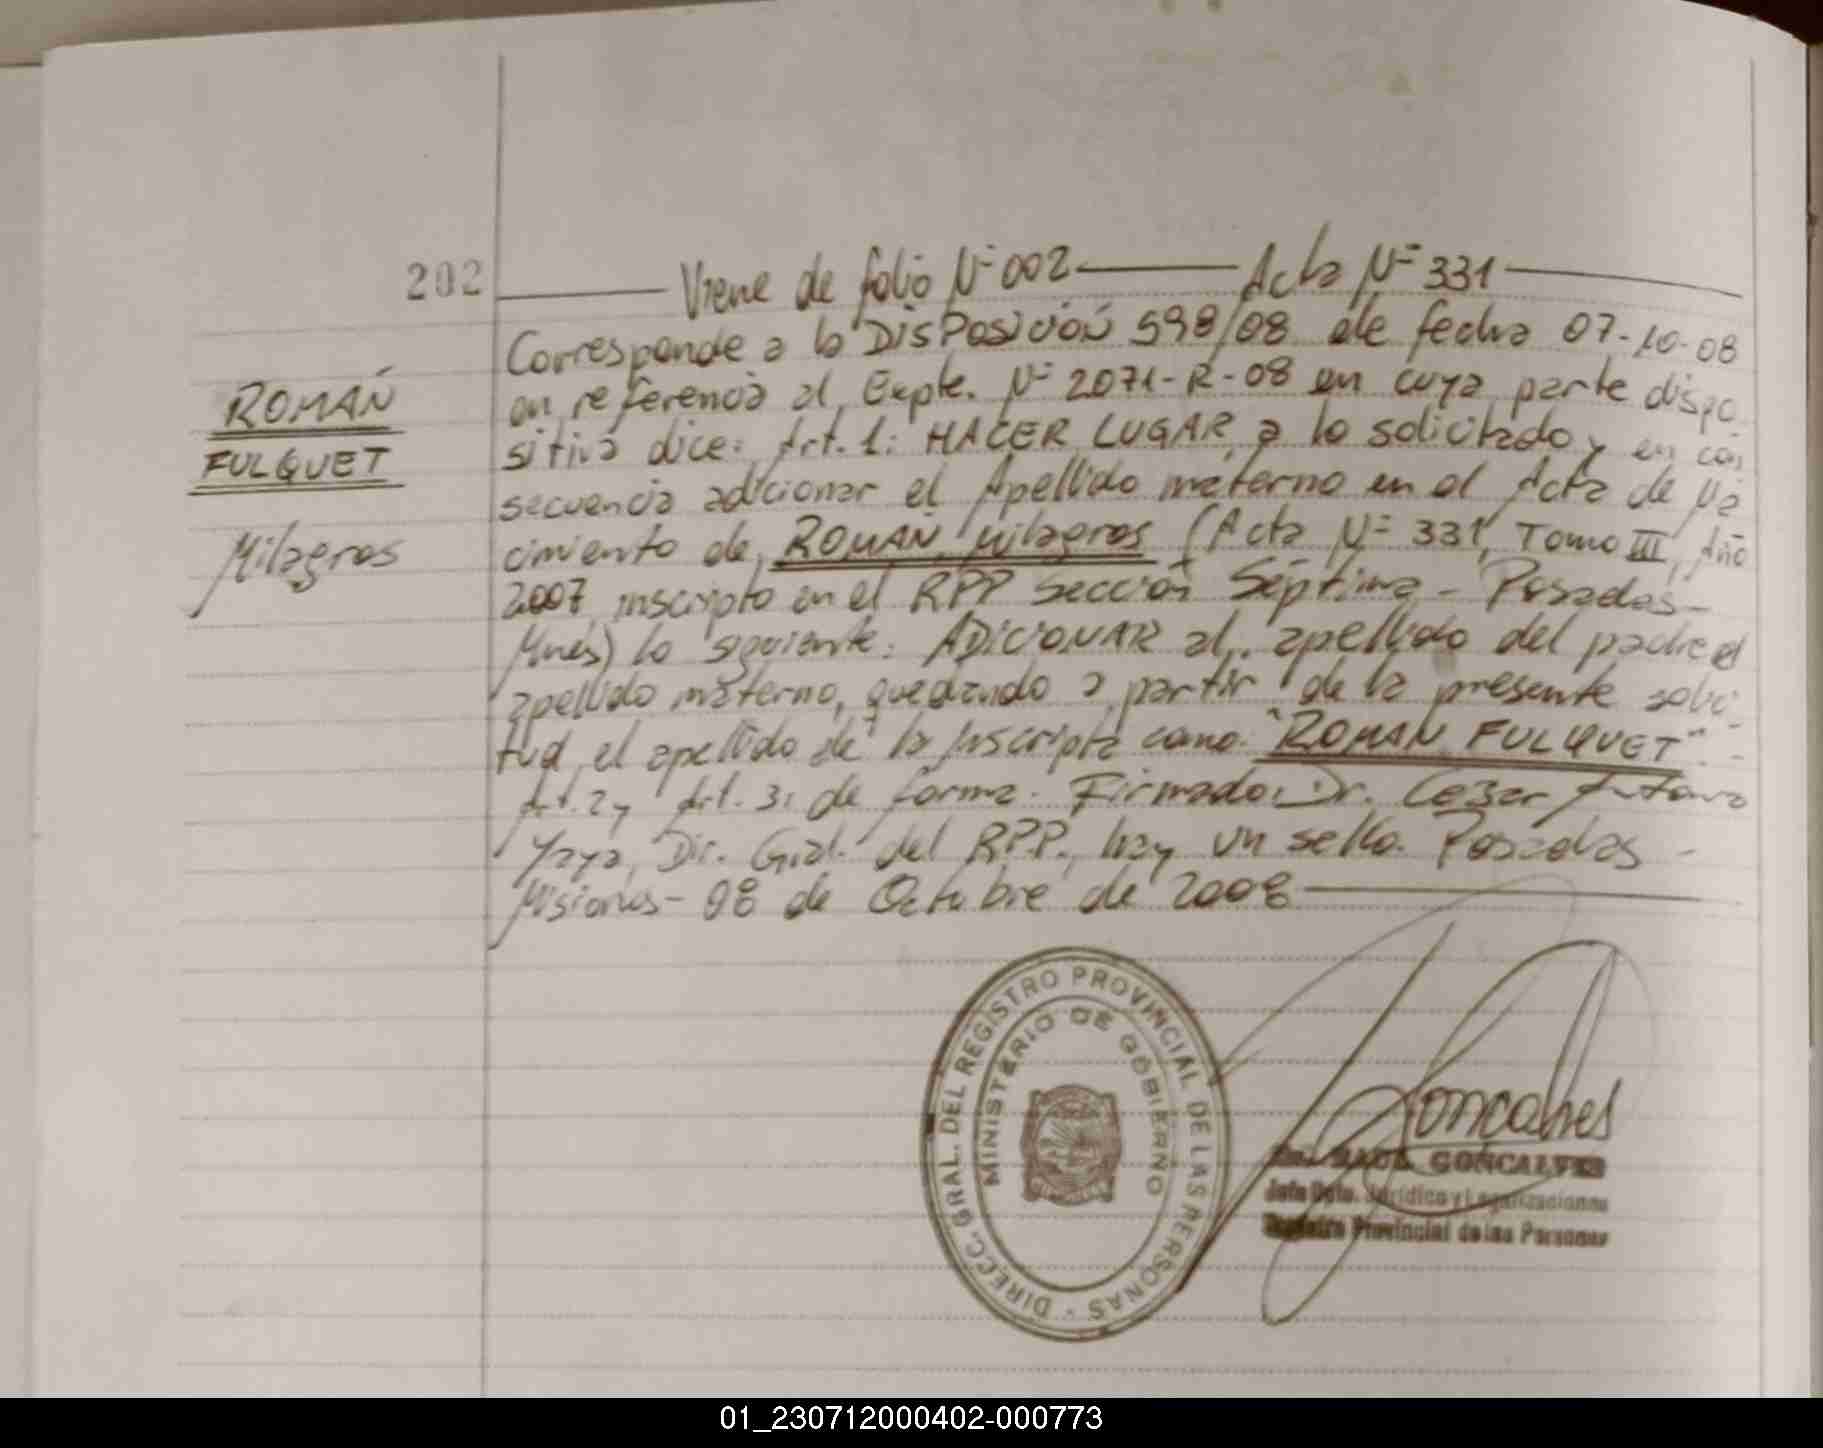 202
Viene de folio Nº 002 — Acta Nº 331
Corresponde a la DISPOSICIÓN 598/08 de fecha 07-10-08
en referencia al Expte. Nº 2071-R-08 en cuya parte dispo
sitiva dice: Art. 1: HACER LUGAR, a lo solicitado y en con
secuencia adicionar el Apellido materno en el Acta de Na
cimiento de ROMÁN, Milagros (Acta Nº 331, Tomo III, Año
2007, inscripto en el RPP Sección Séptima - Posadas-
Mnes) lo siguiente: ADICIONAR al apellido del padre el
apellido materno, quedando a partir de la presente solici-
tud, el apellido de la inscripta como: "ROMAN FULQUET".-
Art. 2, Art. 3: de forma. Firmado: Dr. Cesar
Yaya, Dir. Gral. del RPP., hay un sello. Posadas -
Misiones - 08 de Octubre de 2008
ROMÁN
FULQUET
Milagros
DIRECC. GRAL. DEL REGISTRO PROVINCIAL DE LAS PERSONAS -
MINISTERIO DE GOBIERNO
Goncalves
RAUL GONCALVES
Jefe Dpto. Jurídico y Legalizaciones
Registro Provincial de las Personas
01_230712000402-000773